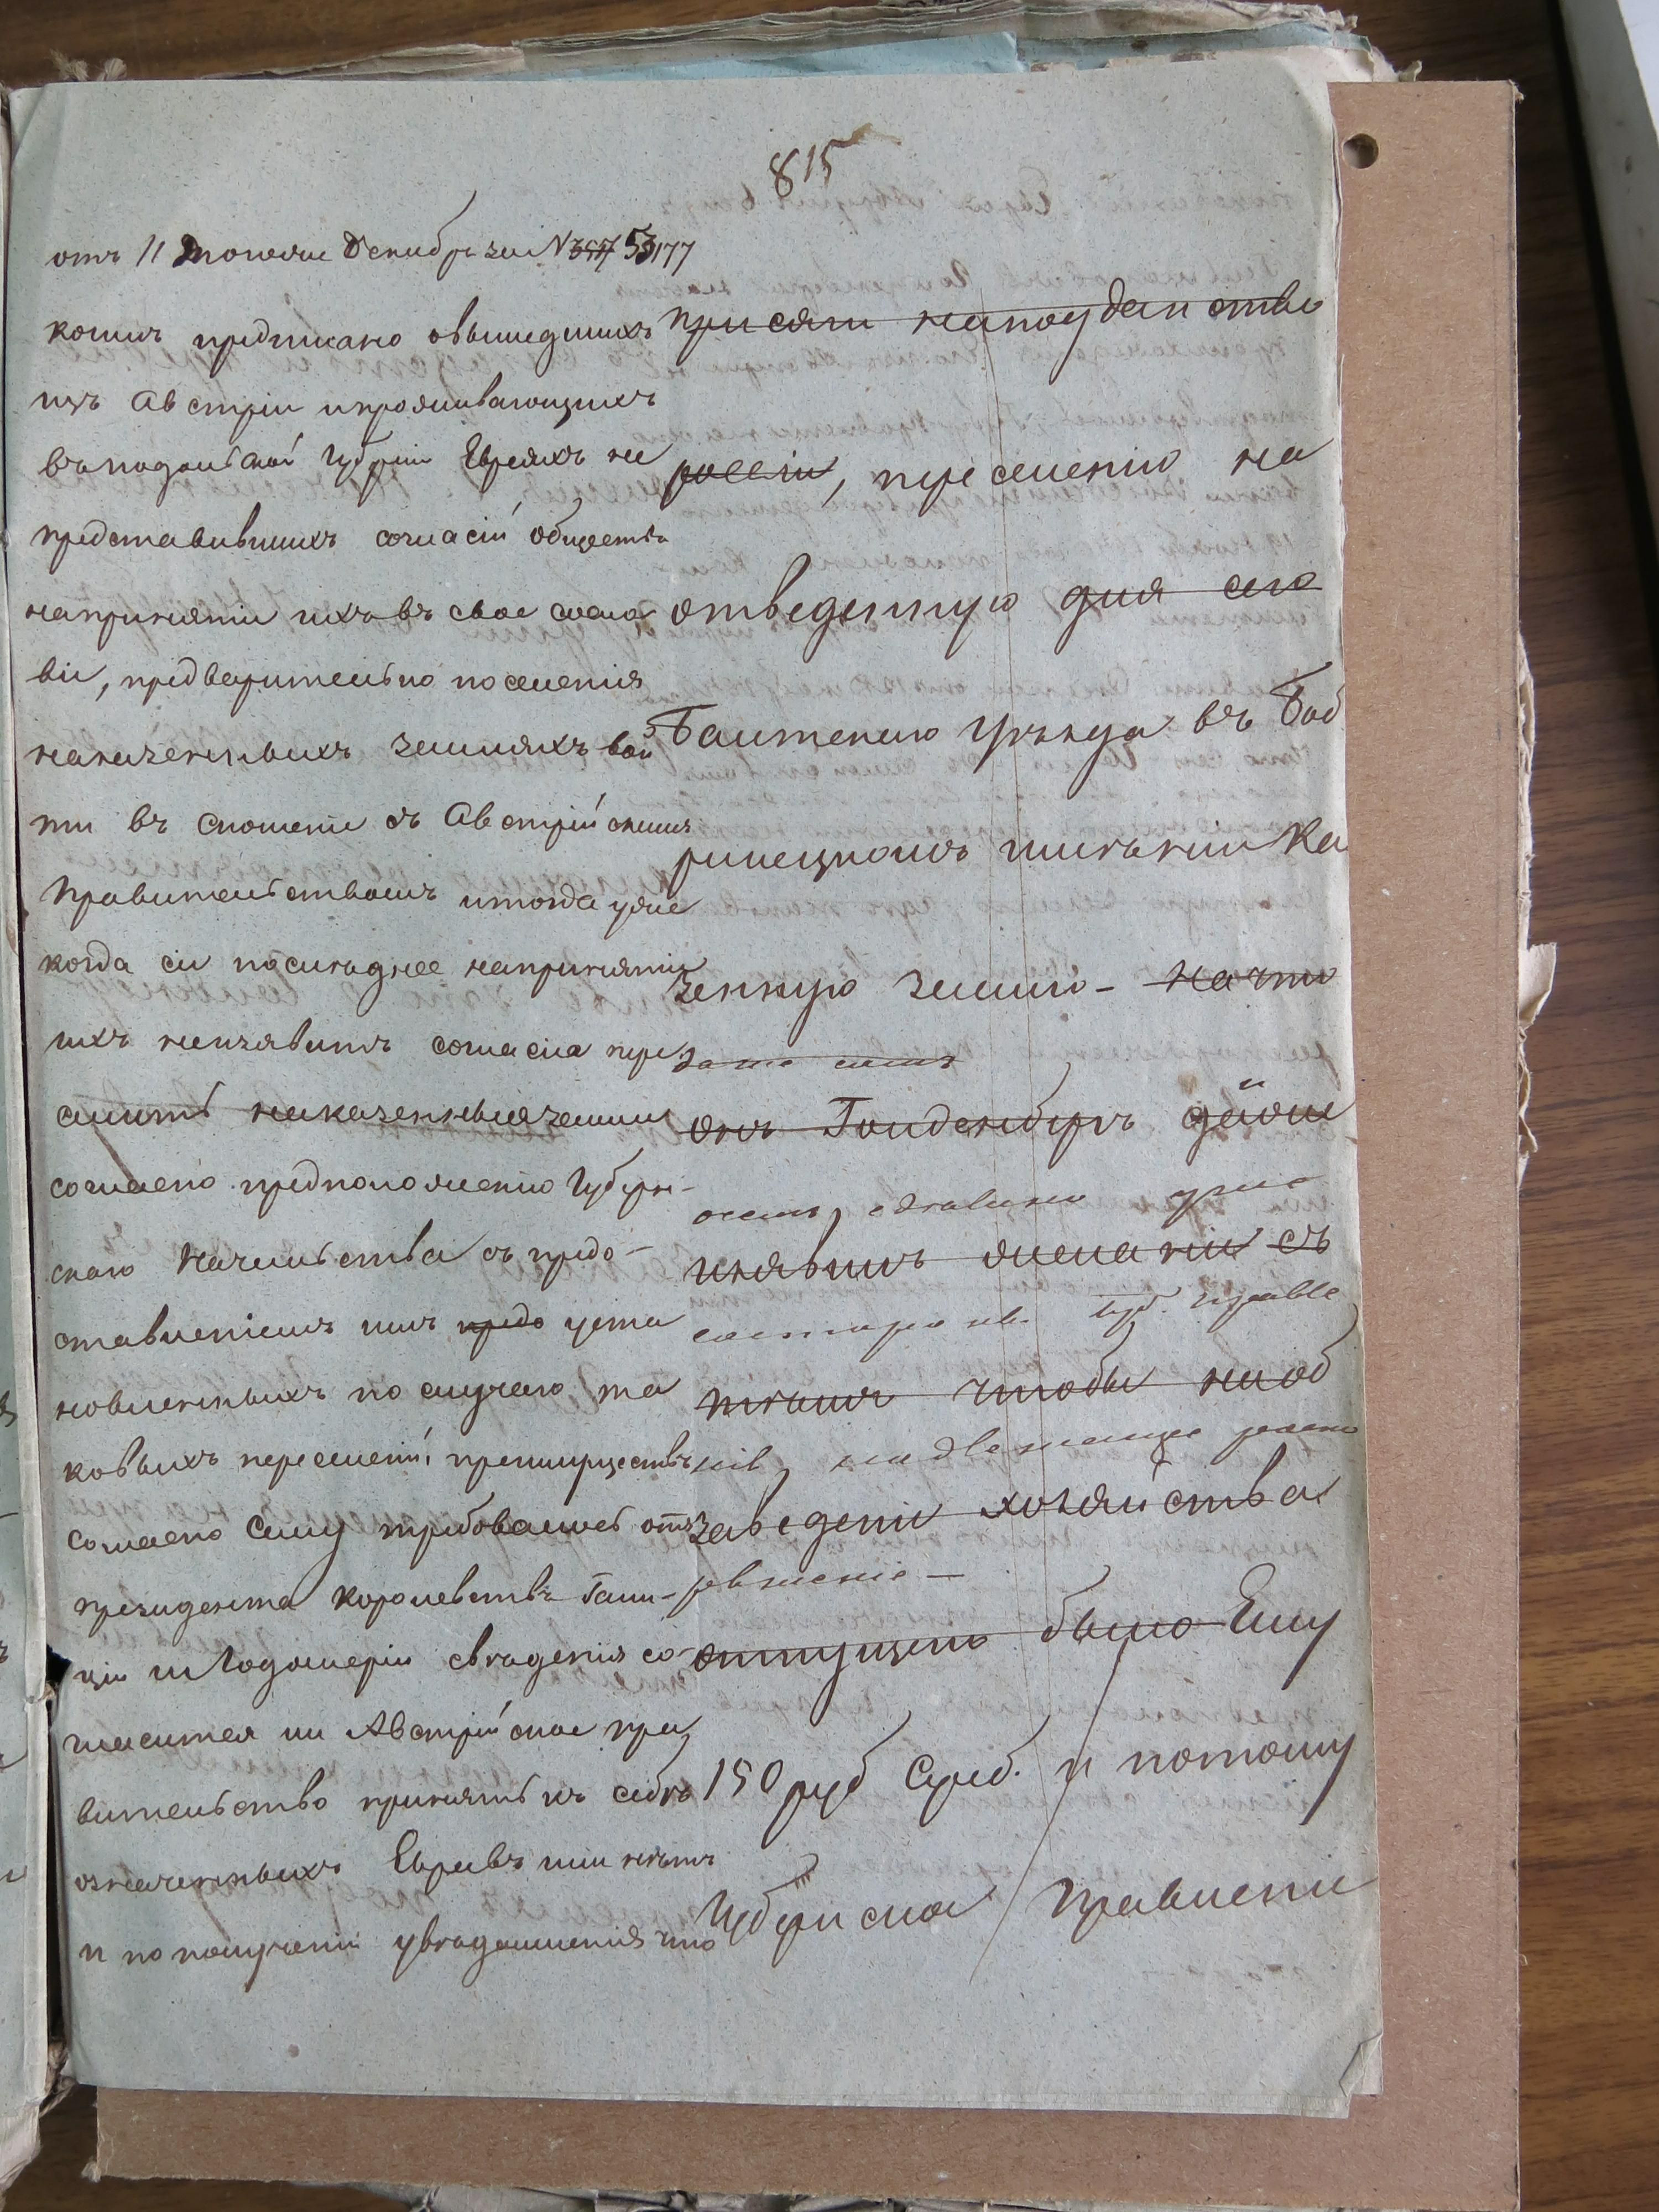 815
отъ 11 тогоже Декабр за № 53177
коимъ предписано овышедшихъ
изъ Австріи ипроживающихъ
въ подольской Губерніи Евреяхъ не
представившихъ согласій обществъ
напринятіе ихъ въ свое сосло
віе, предварительно поселенія
наказенныхъ земляхъ вой
ти въ сношеніе съ Австрійскимъ
Правительствомъ итогда уже
когда сіе последнее напринятіе
ихъ неизъявитъ согласія пере
слить наказенныя земли
согласно предположенію Губерн-
скаго Начальства съ предо-
ставленіемъ имъ предо уста
новленныхъ по случаю та
ковыхъ переселеній преимуществъ
согласно сему требовалось отъ
президента королевствъ Гали-
ціи и Лодомеріи сведенія со-
гласится ли Австрійское пра
вительство принять къ себѣ
означенныхъ Евреевъ или нетъ
и по полученіи уведомленія что
присяги наподданство
россіи, переселенію на
отведенную для сего
Балтскаго Уѣзда въ Боб
ринецкомъ имѣніи Ка
зенную землю- на что
онъ Гольденбергъ
изъявилъ желаніе съ
тѣмъ чтобы на об
заведеніе хозяйства
рѣшеніе-
отпущено было Ему
150 руб Сереб. и потому
Губернское Правленіе